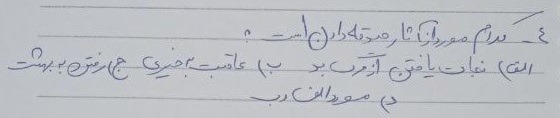 ٤- کدام مورد از آثار صدقه دادن است ؟
الف) نجات یافتن از مرگ بد ب) عاقبت به خیری ج) رفتن به بهشت
د) مورد الف و ب